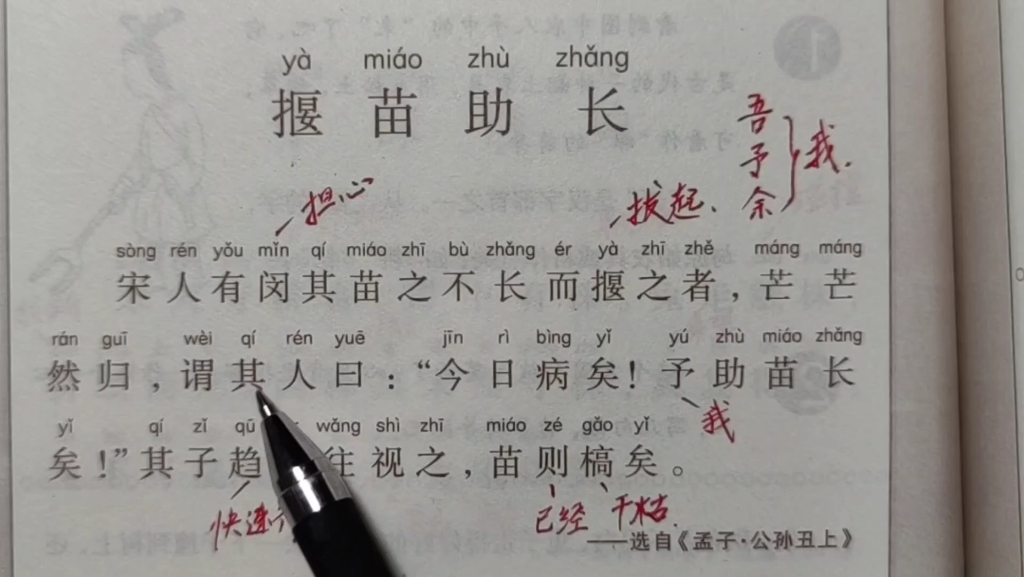 yà miáo zhù zhǎng
揠苗助长
吾
予
余
我.
担心
拔起.
sòng rén yǒu mǐn qí miáo zhī bù zhǎng ér yà zhī zhě máng máng
宋人有闵其苗之不长而揠之者,芒芒
rán guī wèi qí rén yuē jīn rì bìng yǐ yú zhù miáo zhǎng
然归,谓其人曰:“今日病矣!予助苗长
我
yǐ qí zǐ qū wǎng shì zhī miáo zé gǎo yǐ
矣!”其子趋往视之,苗则槁矣。
快速
已经 干枯.
——选自《孟子·公孙丑上》